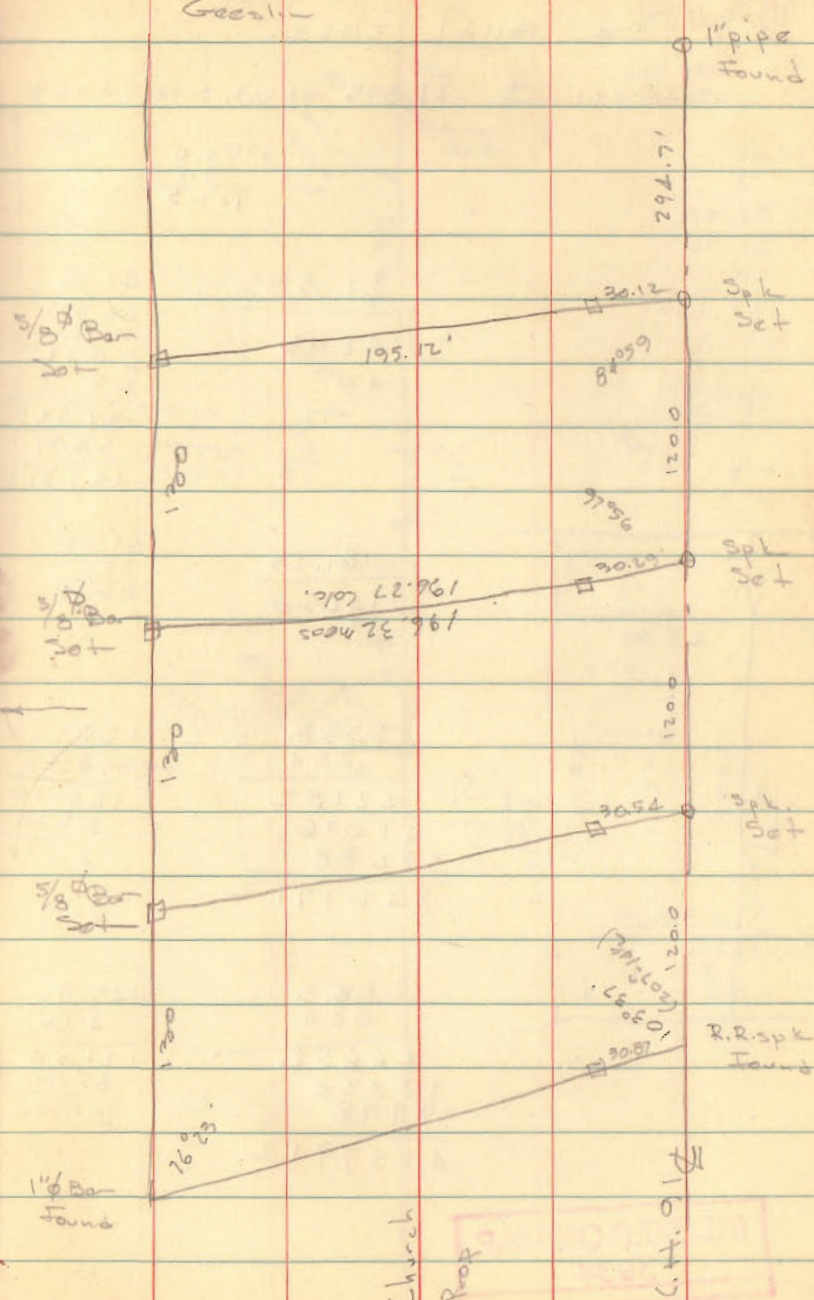 Geeslin
1" pipe
Found
294.7'
30.12
Spk
Set
5/8 ⌀ Bar
Set
195.12'
84°59
120.0
130.0
95°16
30.26
Spk
Set
5/8 ⌀ Bar
Set
196.27 Calc.
196.32 meas
120.0
130
30.54
Spk.
Set
5/8 ⌀ Bar
Set
120.0
(207°-14½)
103°37'
130
30.87
R.R. spk
Found
76°23'
1"⌀ Bar
Found
Church
Prop
C.H. 91